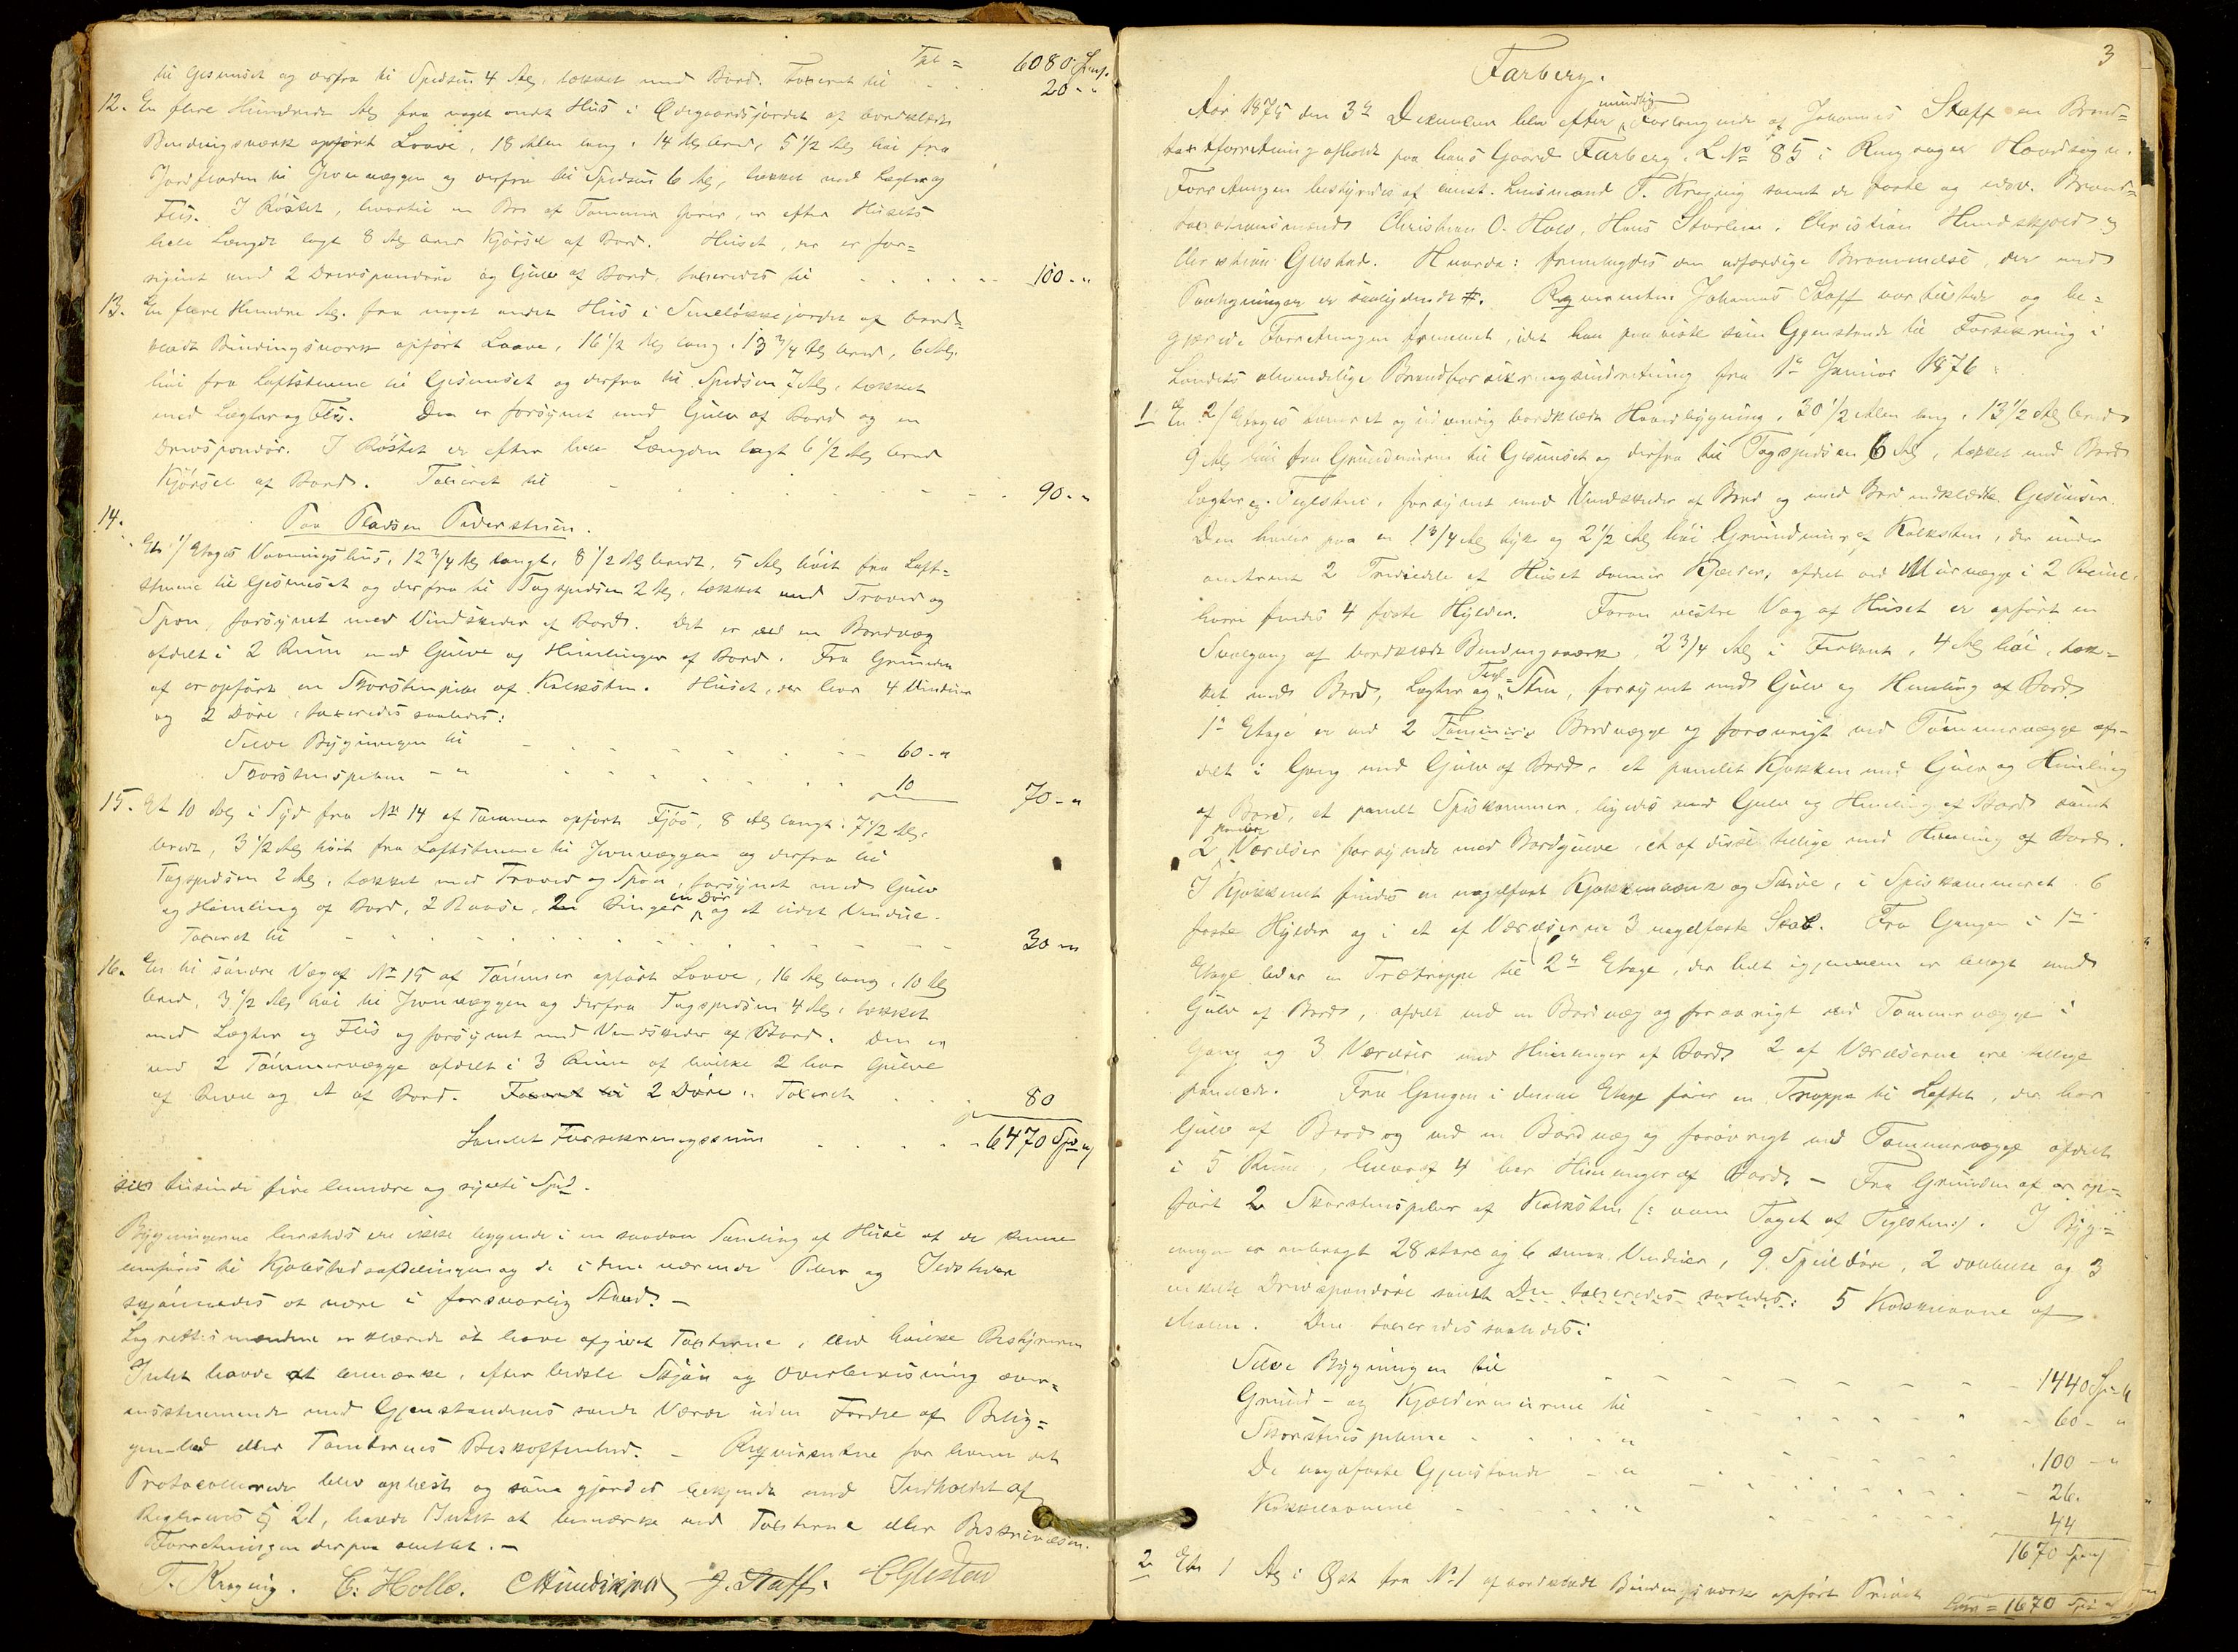 Tpt = 6080 Spd.
til Gesimset og derfra til Spidsen 4 Al, tækket med Bord. Taxeret til 20 - "
12. En flere Hundrede Al fra noget andet Huus i Ødegaardsjordet af bordklædt
Bindingsværk opført Laave, 18 Alen lang, 14 Al bred, 5 1/2 Al høi fra
Jordfladen til Jevnvæggen og derfra til Spidsen 6 Al, tækket med Lægter og
Flis. I Røstet, hvortil en Bro af Tømmer fører, er efter Husets
hele Længde lagt 8 Al bred Kjørsel af Bord. Huset, der er for=
synet med 2 Drevspondøre og Gulv af Bord, taxeredes til 100 - "
13. En flere Hundre Al. fra noget andet Hus i jordet af bord=
klædt Bindingsværk opført Laave, 16 1/2 Al lang, 13 3/4 Al bred, 6 Al.
høi fra Laftstenene til Gesimset og derfra til Spidsen 7 Al, tækket
med Lægter og Flis. Den er forsynet med Gulv af Bord og en
Drevspondør. I Røstet er efter hele Længden lagt 6 1/2 Al bred
Kjørsel af Bord. Taxeret til 90 - "
14. Paa Pladsen
Et 1 Etages Vaaningshus, 12 3/4 Al langt, 8 1/2 Al bredt, 5 Al høit fra Laft=
stenene til Gesimset og derfra til Tagspidsen 2 Al, tækket med Troved og
Spon, forsynet med Vindskeder af Bord. Det er ved en Bordvæg
afdelt i 2 Rum med Gulve og Himlinger af Bord. Fra Grunden
af er opført en Skorstenspibe af Kalksten. Huset, der har 4 Vinduer
og 2 Døre, taxeredes saaledes:
Selve Bygningen til 60 - "
Skorstenspiben - " 10
70 - "
15. Et 10 Al i Syd fra No 14 af Tømmer opført Fjøs, 8 Al langt, 7 1/2 Al.
bredt, 3 1/2 Al høit fra Laftstenene til Jevnvæggen og derfra til
Tagspidsen 2 Al, tækket med Troved og Spon, forsynet med Gulv
og Himling af Bord, 2 Baase, 2 Binger en Dør og et lidet Vindue.
Taxeret til 30 - "
16. En til søndre Væg af No 15 af Tømmer opført Laave, 16 Al lang, 10 Al
bred, 3 1/2 Al høi til Jevnvæggen og derfra Tagspidsen 4 Al, tækket
med Lægter og Flis og forsynet med Vindskeder af Bord. Den er
ved 2 Tømmervægge afdelt i 3 Rum af hvilke 2 har Gulve
af og et af Bord. Taxeret til 2 Døre. Taxeret 80
Samlet Forsikringssum 6470 Spd
sex tusinde fire hundre og sytti Spd.
Bygningerne hersteds ere ikke liggende i en saadan Samling af Huse at de kunne
henføres til Kjøbstedsafdelingen og de i dem værende Piber og Ildsteder
skjønnedes at være i forsvarlig Stand. -
Lagrettesmændene erklærede at have afgivet Taxterne, ved hvilke Bestyreren
Intet havde at bemærke, efter bedste Skjøn og Overbevisning over=
ensstemmende med Gjenstandenes sande Værdi uden Fordel af Belig=
genhed eller Tomternes Beskaffenhed. - Reqvirentene for hvem det
Protocollerede blev oplæst og som gjordes bekjendt med Indholdet af
Reglernes § 21, havde Intet at bemærke ved Taxterne eller Beskrivelsen.
Forretningen derpaa sluttet. -
T. Kragvig. C. Holle. C Hundskjold J. Staff. C Gjestad
3
Farberg.
Aar 1875 den 3de December blev efter mundtlig Forlangende af Johannes Staff en Brand=
taxtforretning afholdt paa hans Gaard Farberg, L No 85 i Ringsager Hovedsogn.
Forretningen bestyredes af const. Lensmand T. Kragvig samt de faste og edsv. Brand=
taxationsmænd Christian O. Holo, Hans Storlien, Christian Hundskjold og
Christian Gjestad. Hvorda: fremlagdes den udfærdige Berammelse, der med
Paategninger er saalydende #. Reqvirenten Johannes Staff var tilstede og be=
gjærede Forretningen fremmet, idet han paaviste som Gjenstande til Forsikring i
Landets almindelige Brandforsikringsindretning fra 1ste Januar 1876:
1. En 2 Etages tømret og udvendig bordklædt Hovedbygning, 30 1/2 Alen lang, 13 1/2 Al bred
9 Al høi fra Grundmuren til Gesimset og derfra til Tagspidsen 6 Al, tækket med Bord
Lægter og Teglsten, forsynet med Vindskeder af Bord og med Bord indklædte Gesimser.
Den hviler paa en 1 3/4 Al tyk og 2 1/2 Al høi Grundmur af Kalksten, der under
omtrent 2 Trediedele af Huset danner Kjælder, afdelt ved Murvægge i 2 Rum,
hvori findes 4 faste Hylder. Foran vestre Væg af Huset er opført en
Svalgang af bordklædt Bindingsværk, 2 3/4 Al i Firkant, 4 Al høi, tæk=
ket med Bord, Lægter og Tegl=Sten, forsynet med Gulv og Himling af Bord.
1ste Etage er ved 2 Tømmer Bordvægge og forøvrigt ved Tømmervægge af=
delt i Gang med Gulv af Bord, et panelet Kjøkken med Gulv og Himling
af Bord, et panelt Spiskammer, ligeledes med Gulv og Himling af Bord samt
2 panelede Værelser forsynede med Bordgulve, et af disse tillige med Himling af Bord.
I Kjøkkenet findes en nagelfast Kjøkkenbænk og Skive, i Spiskammeret 6
faste Hylder og i et af Værelserne 3 nagelfaste Skab. Fra Gangen i 1ste
Etage leder en Trætrappe til 2den Etage, der helt igjennem er belagt med
Gulv af Bord, afdelt ved en Bordvæg og forøvrigt ved Tømmervægge i
Gang og 3 Værelser med Himlinger af Bord. 2 af Værelserne ere tillige
panelede. Fra Gangen i denne Etage fører en Trappe til Loftet, der har
Gulv af Bord og ved en Bordvæg og forøvrigt ved Tømmervægge afdelt
i 5 Rum, hvoraf 4 har Himlinger af Bord. - Fra Grunden af er op=
ført 2 Skorstenspiber af Kalksten (: over Taget af Teglsten :). I Byg=
ningen er anbragt 28 store og 6 smaa Vinduer, 9 Speildøre, 2 dobbelte og 3
enkelte Drevspondøre samt Den taxeredes saaledes: 5 Kakkelovne af
Malm. Den taxeredes saaledes:
Selve Bygningen til 1440 Spd
Grund- og Kjældermurene til 60 - "
Skorstenspiberne 100 - "
De nagelfaste Gjenstande - " 26.
Kakkelovnene 44
1670 Spd
2. Et 1 Al i Øst fra No 1 af bordklædt Bindingsværk opført Privet
= 1670 Spd